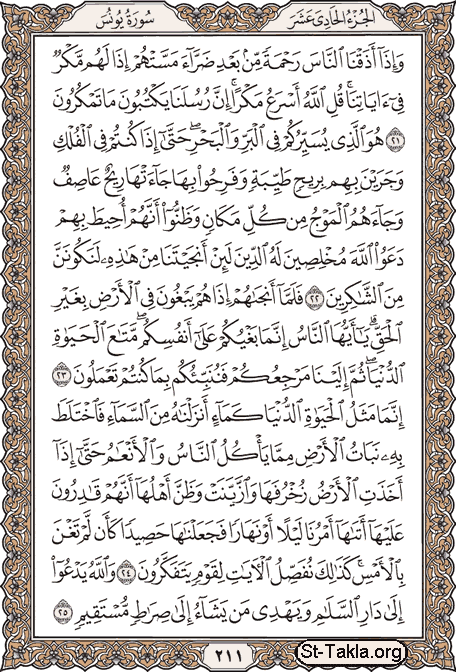 الجزء الحادى عشر
سورة يونس
وَإِذَآ أَذَقۡنَا ٱلنَّاسَ رَحۡمَةٗ مِّنۢ بَعۡدِ ضَرَّآءَ مَسَّتۡهُمۡ إِذَا لَهُم مَّكۡرٞ
فِيٓ ءَايَاتِنَاۚ قُلِ ٱللَّهُ أَسۡرَعُ مَكۡرًاۚ إِنَّ رُسُلَنَا يَكۡتُبُونَ مَا تَمۡكُرُونَ
٢١ هُوَ ٱلَّذِي يُسَيِّرُكُمۡ فِي ٱلۡبَرِّ وَٱلۡبَحۡرِۖ حَتَّىٰٓ إِذَا كُنتُمۡ فِي ٱلۡفُلۡكِ
وَجَرَيۡنَ بِهِم بِرِيحٖ طَيِّبَةٖ وَفَرِحُواْ بِهَا جَآءَتۡهَا رِيحٌ عَاصِفٞ
وَجَآءَهُمُ ٱلۡمَوۡجُ مِن كُلِّ مَكَانٖ وَظَنُّوٓاْ أَنَّهُمۡ أُحِيطَ بِهِمۡ
دَعَوُاْ ٱللَّهَ مُخۡلِصِينَ لَهُ ٱلدِّينَ لَئِنۡ أَنجَيۡتَنَا مِنۡ هَٰذِهِۦ لَنَكُونَنَّ
مِنَ ٱلشَّٰكِرِينَ ٢٢ فَلَمَّآ أَنجَىٰهُمۡ إِذَا هُمۡ يَبۡغُونَ فِي ٱلۡأَرۡضِ بِغَيۡرِ
ٱلۡحَقِّۗ يَٰٓأَيُّهَا ٱلنَّاسُ إِنَّمَا بَغۡيُكُمۡ عَلَىٰٓ أَنفُسِكُمۖ مَّتَٰعَ ٱلۡحَيَوٰةِ
ٱلدُّنۡيَاۖ ثُمَّ إِلَيۡنَا مَرۡجِعُكُمۡ فَنُنَبِّئُكُم بِمَا كُنتُمۡ تَعۡمَلُونَ ٢٣
إِنَّمَا مَثَلُ ٱلۡحَيَوٰةِ ٱلدُّنۡيَا كَمَآءٍ أَنزَلۡنَٰهُ مِنَ ٱلسَّمَآءِ فَٱخۡتَلَطَ
بِهِۦ نَبَاتُ ٱلۡأَرۡضِ مِمَّا يَأۡكُلُ ٱلنَّاسُ وَٱلۡأَنۡعَٰمُ حَتَّىٰٓ إِذَآ
أَخَذَتِ ٱلۡأَرۡضُ زُخۡرُفَهَا وَٱزَّيَّنَتۡ وَظَنَّ أَهۡلُهَآ أَنَّهُمۡ قَٰدِرُونَ
عَلَيۡهَآ أَتَىٰهَآ أَمۡرُنَا لَيۡلًا أَوۡ نَهَارٗا فَجَعَلۡنَٰهَا حَصِيدٗا كَأَن لَّمۡ تَغۡنَ
بِٱلۡأَمۡسِۚ كَذَٰلِكَ نُفَصِّلُ ٱلۡأٓيَٰتِ لِقَوۡمٖ يَتَفَكَّرُونَ ٢٤ وَٱللَّهُ يَدۡعُوٓاْ
إِلَىٰ دَارِ ٱلسَّلَٰمِ وَيَهۡدِي مَن يَشَآءُ إِلَىٰ صِرَٰطٖ مُّسۡتَقِيمٖ ٢٥
٢١١
St-Takla.org